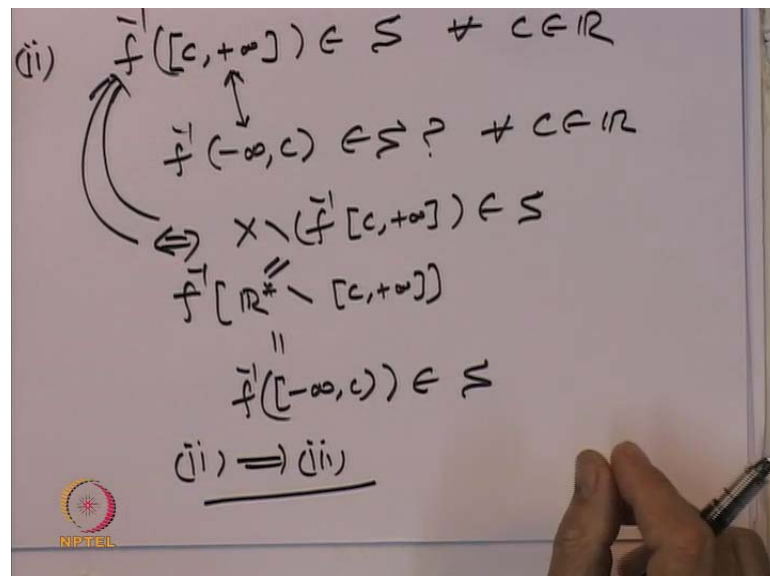 (ii) f⁻¹([c, +∞]) ∈ S ∀ c ∈ ℝ
f⁻¹(-∞, c) ∈ S ? ∀ c ∈ ℝ
⇔ X \ (f⁻¹[c, +∞]) ∈ S
f⁻¹[ℝ* \ [c, +∞]]
=
f⁻¹([-∞, c)) ∈ S
(ii) ⟹ (iii)
NPTEL